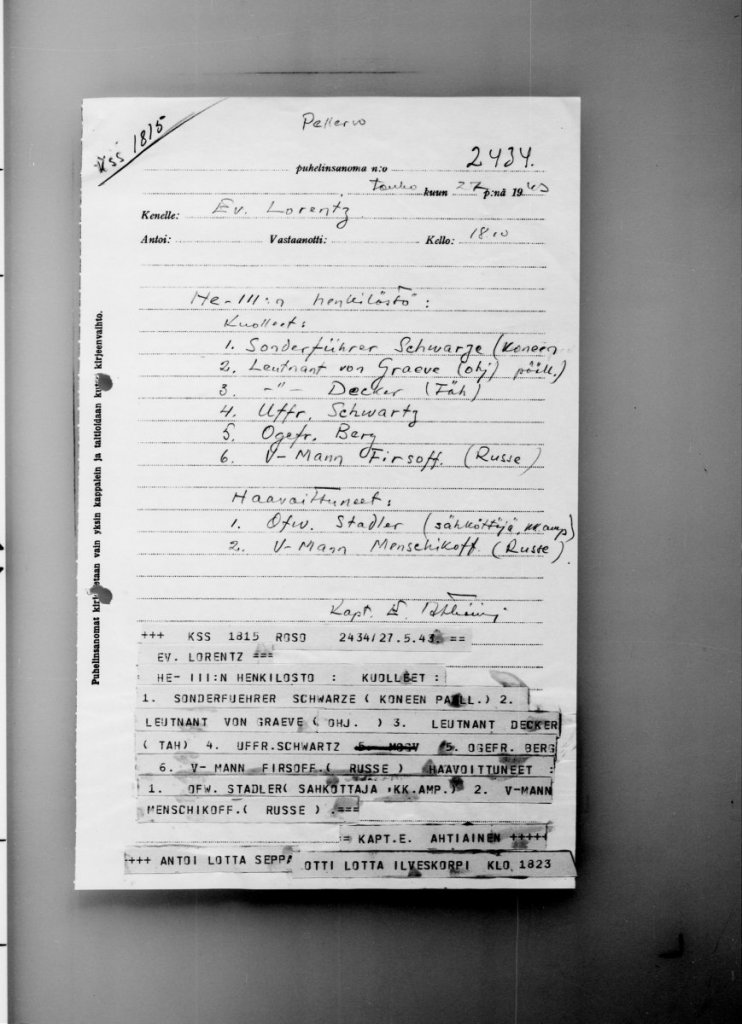 KSS 1815
Pellervo
puhelinsanoma n:o 2434.
Touko kuun 27 p:nä 1943
Kenelle: Ev. Lorentz
Antoi: Vastaanotti: Kello: 18.10
He-III:n henkilöstö:
Kuolleet:
1. Sonderführer Schwarze (koneen
2. Leutnant von Graeve (ohj) pääll.)
3. -"- Decker (Täh)
4. Uffr. Schwartz
5. Ogefr. Berg
6. V-Mann Firsoff. (Russe)
Haavoittuneet:
1. Ofw. Stadler (sähköttäjä, kk.amp)
2. V-Mann Menschikoff. (Russe)
Kapt. E. Ahtiainen
Puhelinsanomat kirjoitetaan vain yksin kappalein ja taltioidaan kuten kirjeenvaihto.
+++ KSS 1815 ROSO 2434/27.5.43. ==
EV. LORENTZ ===
HE- III:N HENKILOSTO : KUOLLEET :
1. SONDERFUEHRER SCHWARZE ( KONEEN PAALL.) 2.
LEUTNANT VON GRAEVE ( OHJ. ) 3. LEUTNANT DECKER
( TAH) 4. UFFR.SCHWARTZ 5. OGEFR. BERG
6. V- MANN FIRSOFF.( RUSSE ) HAAVOITTUNEET :
1. OFW. STADLER( SAHKOTTAJA ,KK.AMP.) 2. V-MANN
MENSCHIKOFF.( RUSSE ) .===
= KAPT.E. AHTIAINEN +++++
+++ ANTOI LOTTA SEPPA OTTI LOTTA ILVESKORPI KLO 1823